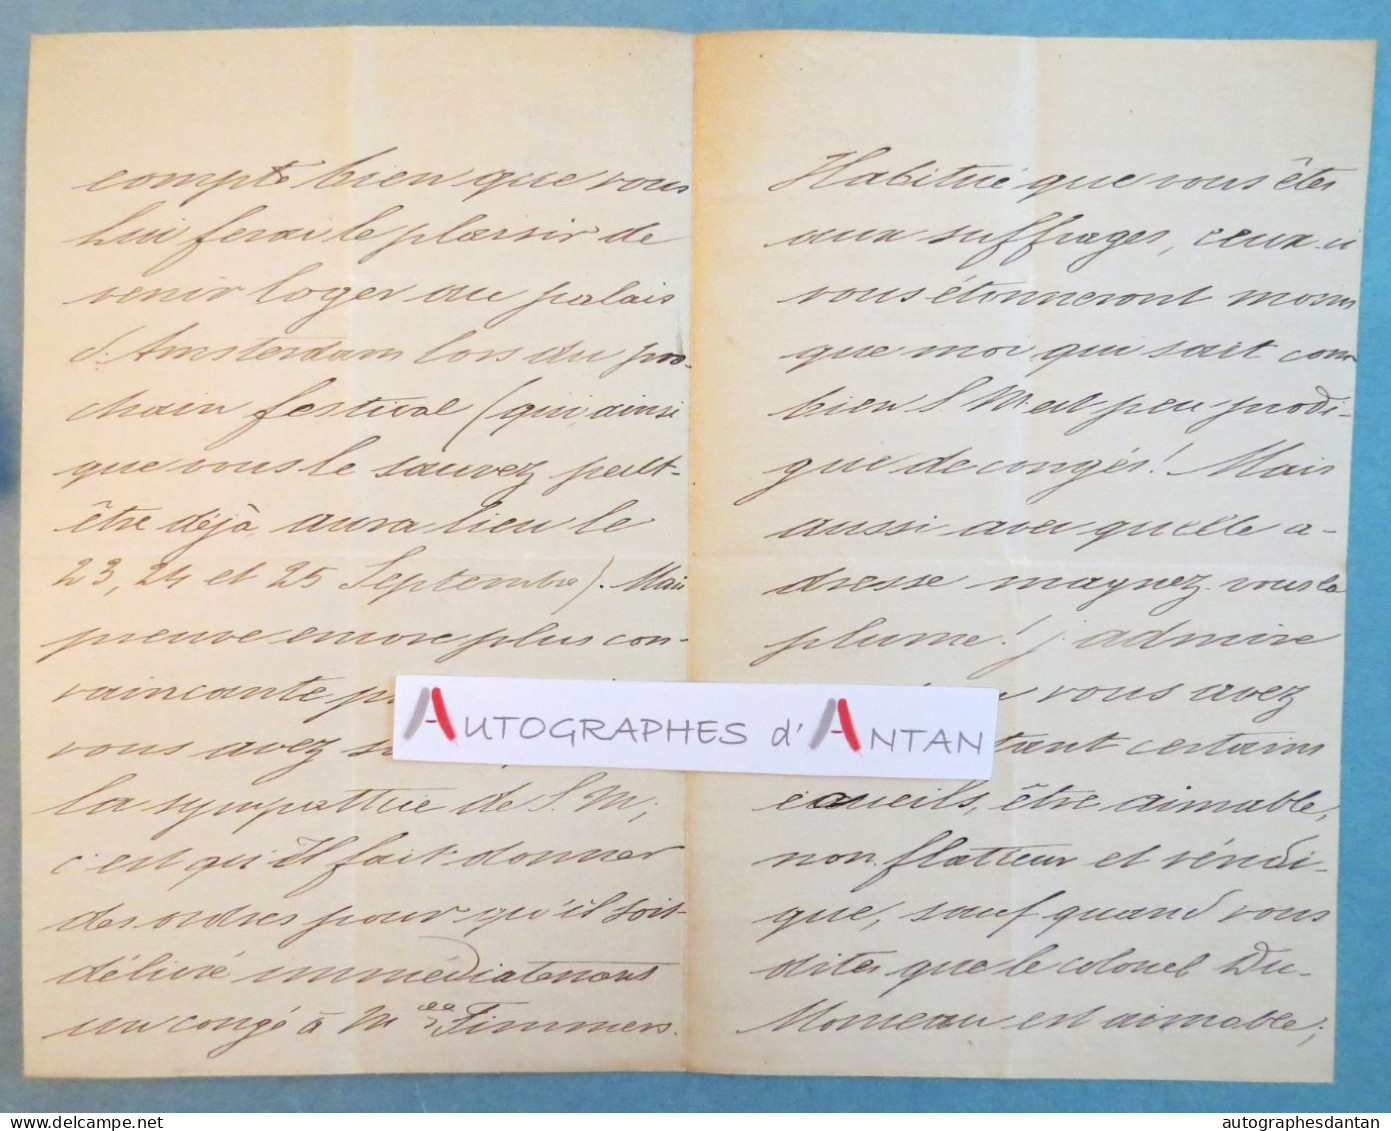 compte bien que vous
lui ferai le plaisir de
venir loger au palais
d'Amsterdam lors du pro-
chain festival (qui, ainsi
que vous le sauvez peut-
être déjà, aura lieu le
23, 24 et 25 Septembre). Mais
preuve encore plus con-
vaincante
vous avez
la sympathie de S. M.,
c'est qu'Il fait donner
des ordres pour qu'il soit
délivré immédiatement
un congé à M Timmers.
Habitué que vous êtes
aux suffrages, ceux-ci
vous étonneront moins
que moi qui sait com
bien S. M. est peu prodi-
gue de congés! Mais
aussi avec quelle a-
dresse maynez-vous la
plume! j'admire
vous avez
tant certains
écueils, être aimable,
non flatteur et véridi-
que, sauf quand vous
dites que le colonel Du-
Monceau est aimable;
AUTOGRAPHES d'ANTAN
autographesdantan